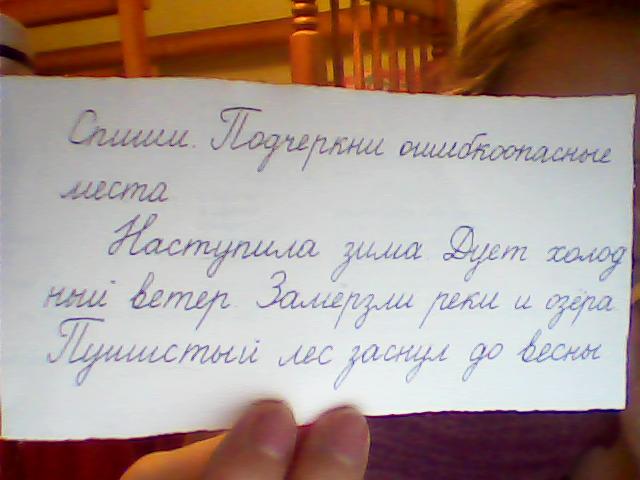 Спиши. Подчеркни ошибкоопасные
места
Наступила зима. Дует холод
ный ветер. Замёрзли реки и озёра.
Пушистый лес заснул до весны